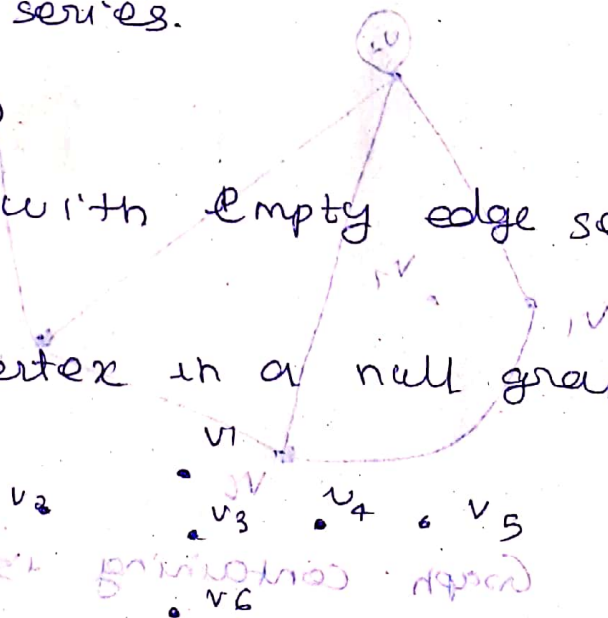 series.
with empty edge se
ertex in a null gra
v1
v2 v3 v4 v5
v6